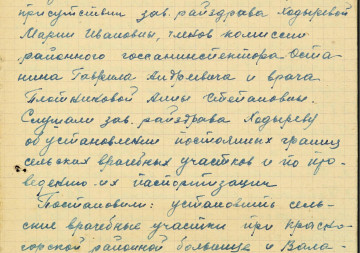 присутствии зав. райздрава Лодыревой
Марии Ивановны, членов комиссии
районного госсанинспектора Оста-
нина Гаврила Андреевича и врача
Плотниковой Анны Степановны.
Слушали зав. райздрава Лодыреву
об установлении постоянных границ
сельских врачебных участков и по про-
ведению их паспортизации
Постановили: установить сель-
ские врачебные участки при Красно-
горской районной больнице и Вала-